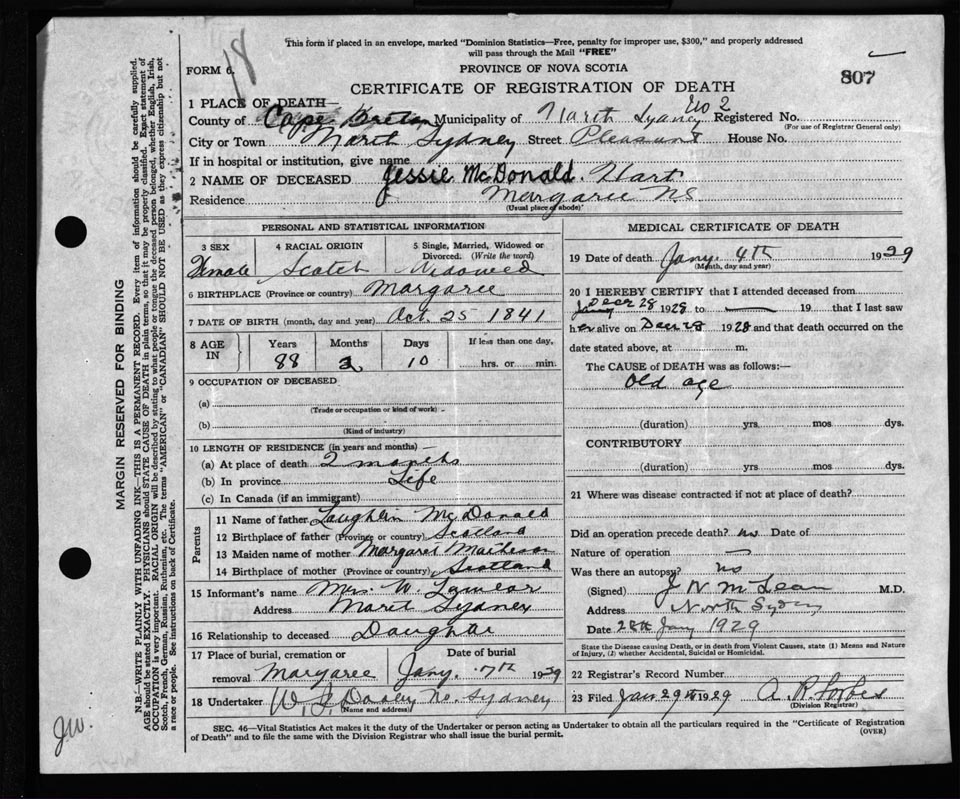 This form if placed in an envelope, marked "Dominion Statistics—Free, penalty for improper use, $300," and properly addressed
will pass through the Mail "FREE"
FORM 6.
PROVINCE OF NOVA SCOTIA
807
CERTIFICATE OF REGISTRATION OF DEATH
1 PLACE OF DEATH—
County of Cape Breton Municipality of North Sydney No 2 Registered No.
(For use of Registrar General only)
City or Town North Sydney Street Pleasant House No.
If in hospital or institution, give name
2 NAME OF DECEASED Jessie McDonald Hart
Residence Margaree NS
(Usual place of abode)
PERSONAL AND STATISTICAL INFORMATION
3 SEX 4 RACIAL ORIGIN 5 Single, Married, Widowed or Divorced. (Write the word)
Female Scotch Widowed
6 BIRTHPLACE (Province or country) Margaree
7 DATE OF BIRTH (month, day and year) Oct. 25 1841
8 AGE IN Years Months Days If less than one day,
88 10 hrs. or min.
9 OCCUPATION OF DECEASED
(a)
(Trade or occupation or kind of work)
(b)
(Kind of industry)
10 LENGTH OF RESIDENCE (in years and months)—
(a) At place of death 2 months
(b) In province Life
(c) In Canada (if an immigrant)
Parents
11 Name of father Laughlin McDonald
12 Birthplace of father (Province or country) Scotland
13 Maiden name of mother Margaret Matheson
14 Birthplace of mother (Province or country) Scotland
15 Informant's name Mrs. W. Lawlor
Address North Sydney
16 Relationship to deceased Daughter
17 Place of burial, cremation or removal Date of burial
Margaree Jany. 7th 1929
18 Undertaker W. J. Dooley No. Sydney
(Name and address)
MEDICAL CERTIFICATE OF DEATH
19 Date of death Jany. 4th 1929
(Month, day and year)
20 I HEREBY CERTIFY that I attended deceased from
Decr 28 1928 to 19 that I last saw
her alive on Decr 28 1928 and that death occurred on the
date stated above, at m.
The CAUSE OF DEATH was as follows:—
Old age
(duration) yrs mos dys.
CONTRIBUTORY
(duration) yrs mos dys.
21 Where was disease contracted if not at place of death?
Did an operation precede death? no Date of
Nature of operation —
Was there an autopsy? no
(Signed) J N McLean M.D.
Address North Sydney
Date 28th Jany 1929
State the Disease causing Death, or in death from Violent Causes, state (1) Means and
Nature of Injury, (2) whether Accidental, Suicidal or Homicidal.
22 Registrar's Record Number
23 Filed Jan 29th 1929 A. R. Forbes
(Division Registrar)
SEC. 46—Vital Statistics Act makes it the duty of the Undertaker or person acting as Undertaker to obtain all the particulars required in the "Certificate of Registration
of Death" and to file the same with the Division Registrar who shall issue the burial permit.
(OVER)
MARGIN RESERVED FOR BINDING
N.B.—WRITE PLAINLY WITH UNFADING INK—THIS IS A PERMANENT RECORD. Every item of information should be carefully supplied.
AGE should be stated EXACTLY. PHYSICIANS should STATE CAUSE OF DEATH in plain terms, so that it may be properly classified. Exact statement of
OCCUPATION is very important. RACIAL ORIGIN will be described by stating to what people or tongue the deceased person belonged, whether English, Irish,
Scotch, French, German, Russian, Ruthenian, etc. The terms "AMERICAN" or "CANADIAN" SHOULD NOT BE USED as they express citizenship but not
a race or people. See instructions on back of Certificate.
JW.